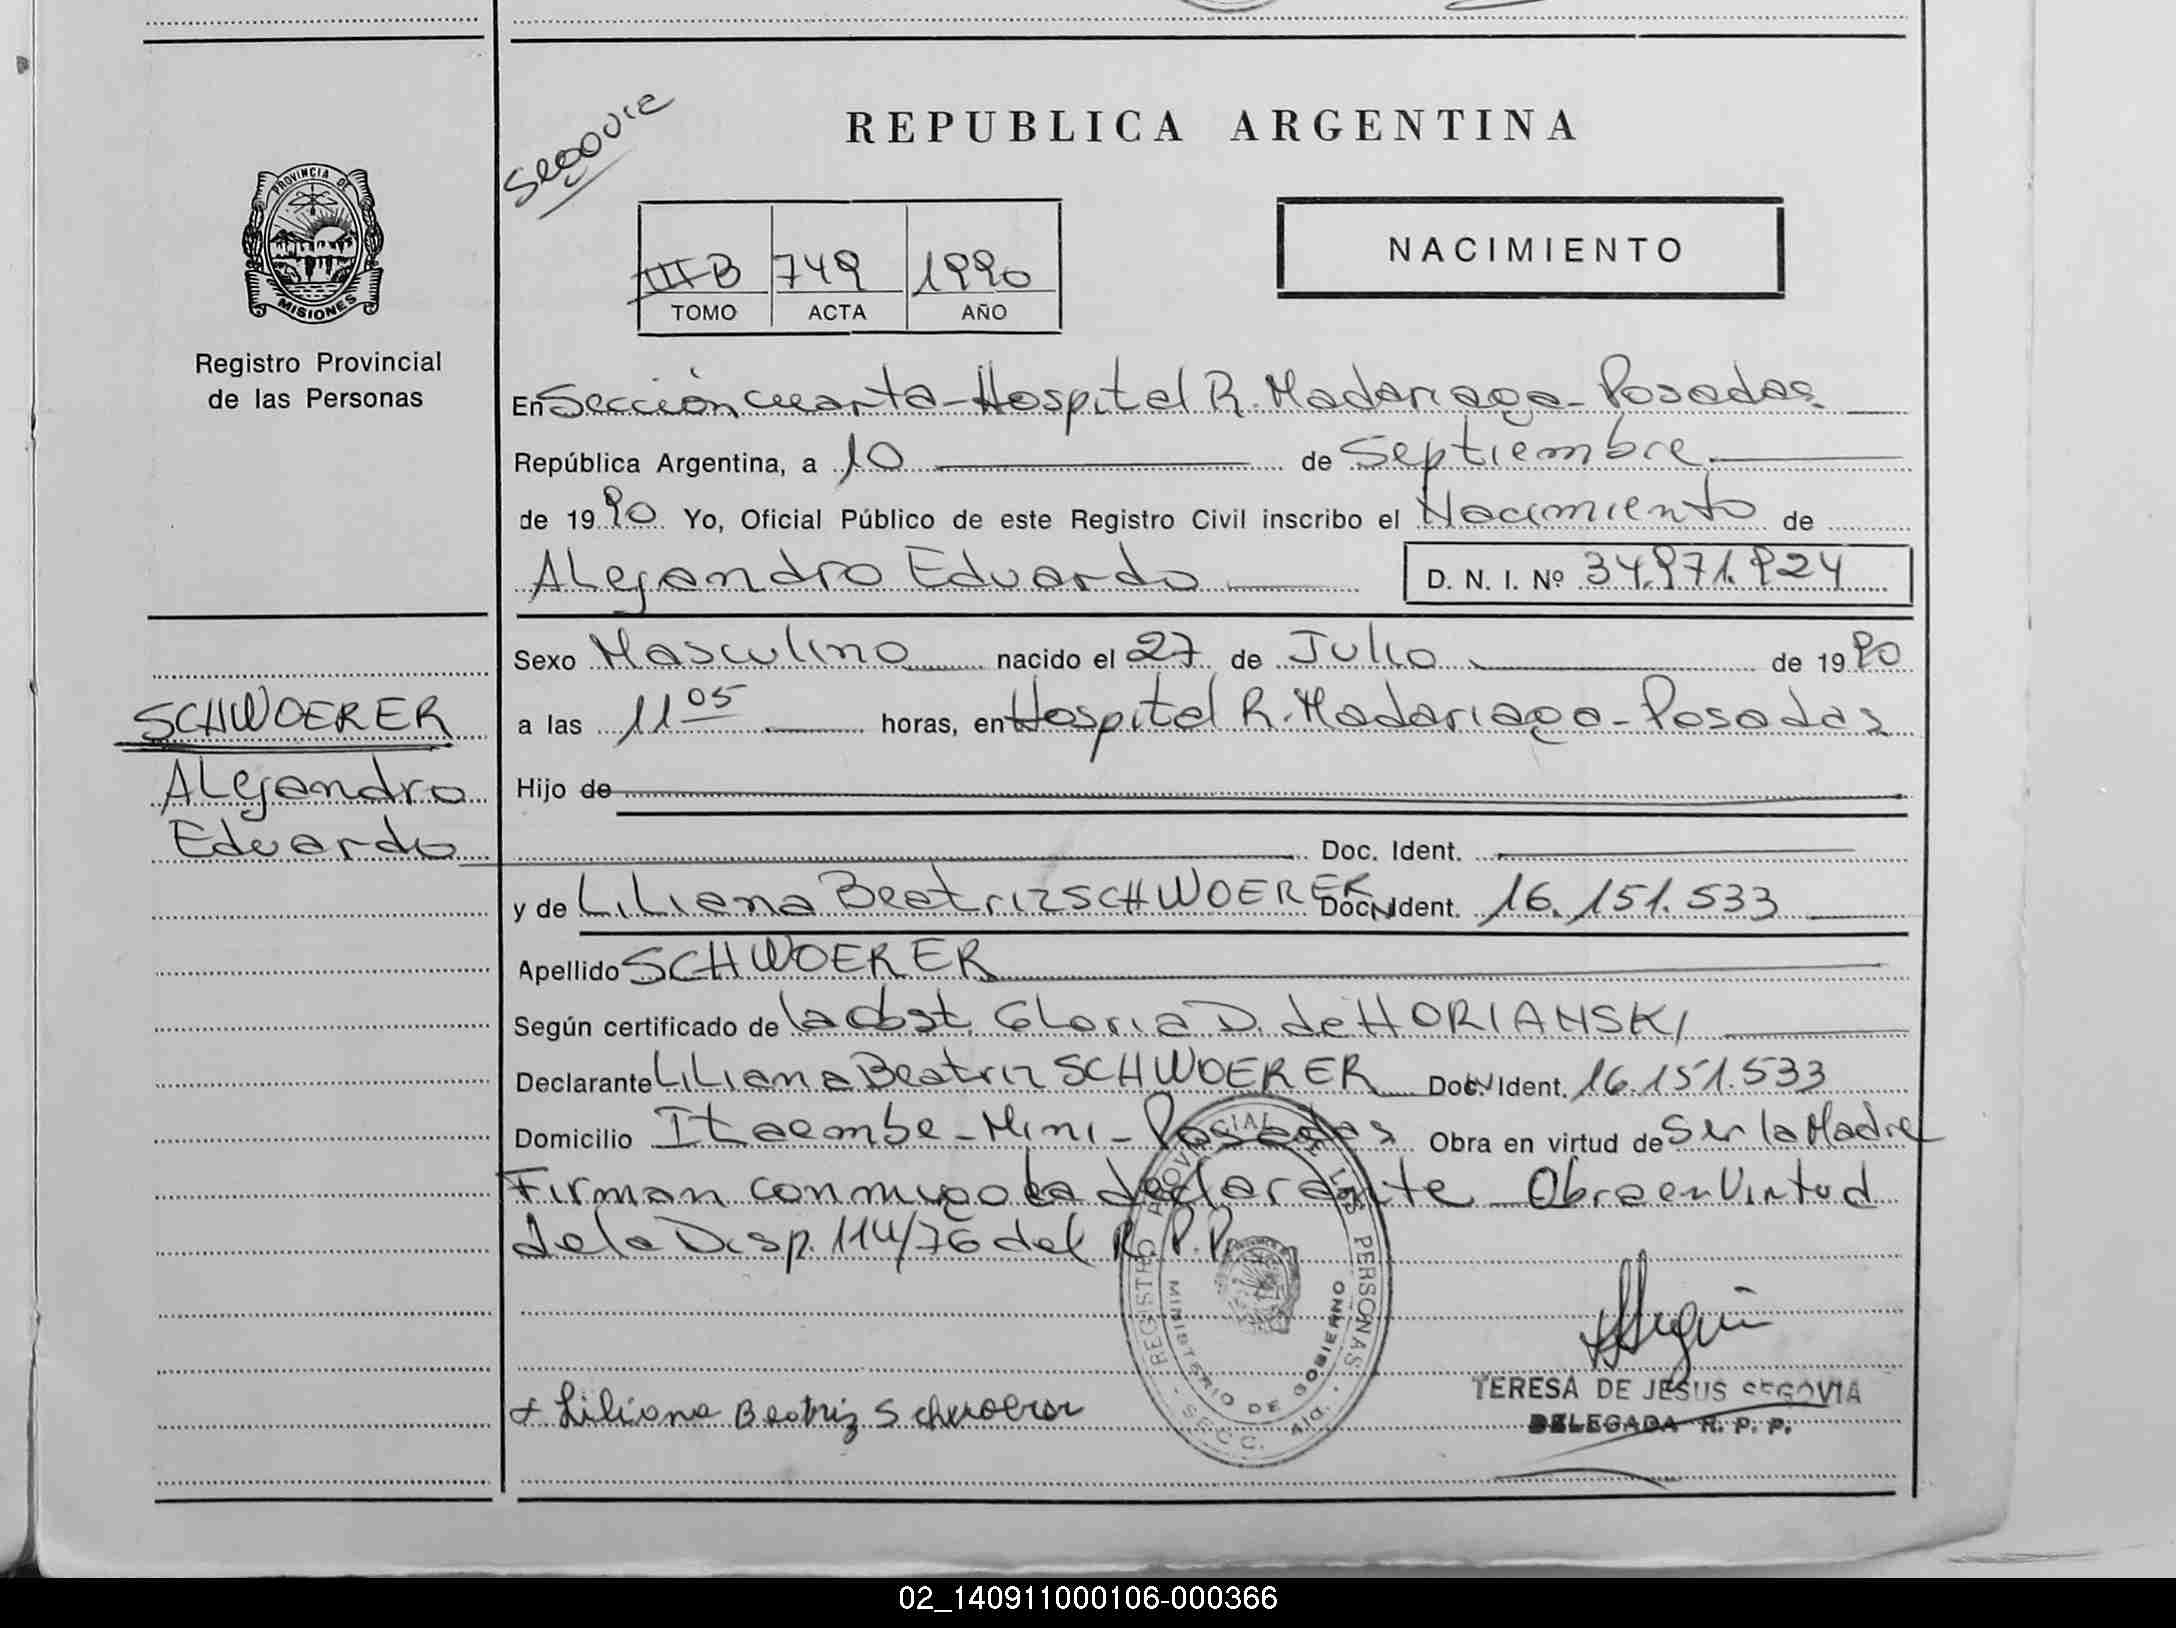 Segovia
REPUBLICA ARGENTINA
PROVINCIA DE
MISIONES
Registro Provincial
de las Personas
III B 749 1990
TOMO ACTA AÑO
NACIMIENTO
En Sección cuarta - Hospital R. Madariaga - Posadas
República Argentina, a 10 de Septiembre
de 1990 Yo, Oficial Público de este Registro Civil inscribo el Nacimiento de
Alejandro Eduardo D. N. I. Nº 34.971.924
Sexo Masculino nacido el 27 de Julio de 1990
SCHWOERER
Alejandro
Eduardo
a las 11 05 horas, en Hospital R. Madariaga - Posadas
Hijo de
Doc. Ident.
y de Liliana Beatriz SCHWOERER Doc. Ident. 16.151.533
Apellido SCHWOERER
Según certificado de la obst. Gloria D. de HORIANSKI
Declarante Liliana Beatriz SCHWOERER Doc. Ident. 16.151.533
Domicilio Itaembe - Mini - Posadas Obra en virtud de Ser la Madre
Firman conmigo la declarante Obra en Virtud
de la Disp. 114/76 del R. P. P.
REGISTRO PROVINCIAL DE LAS PERSONAS
MINISTERIO DE GOBIERNO
SECC. 4ta.
Liliana Beatriz Schwoerer
TERESA DE JESUS SEGOVIA
DELEGADA R. P. P.
02_140911000106-000366